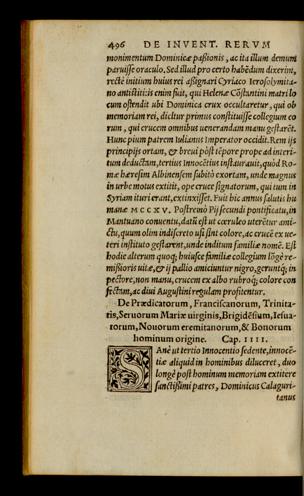 496 DE INVENT. RERVM
monimentum Dominicæ passionis, ac ita illum demum
paruisse oraculo. Sed illud pro certo habēdum dixerim,
rectè initium huius rei assignari Cyriaco Ierosolymita-
no antistiti: is enim fuit, qui Helenæ Cōstantini matri lo
cum ostendit ubi Dominica crux occultaretur, qui ob
memoriam rei, dicitur primus constituisse collegium eo
rum, qui crucem omnibus uenerandam manu gestarēt.
Hunc pium patrem Iulianus Imperator occidit. Rem ijs
principijs ortam, & breui pòst tēpore prope ad interi-
tum deductam, tertius Innocētius instaurauit, quòd Ro-
mæ hæresim Albinensem subitò exortam, unde magnus
in urbe motus extitit, ope cruce signatorum, qui tum in
Syriam ituri erant, extinxisset. Fuit hic annus salutis hu
manæ MCCXV. Postremò Pij secundi pontificatu, in
Mantuano conuentu, datū est ut cœruleo uterētur ami-
ctu, quum olim indiscreto usi sint colore, ac crucē ex ue-
teri instituto gestarent, unde inditum familiæ nomē. Est
hodie alterum quoq; huiusce familiæ collegium lōgè re-
missioris uitæ, & ij pallio amiciuntur nigro, gerūntq; in
pectore, non manu, crucem ex albo rubroq; colore con
fectam, ac diui Augustini regulam profitentur.
De Prædicatorum, Franciscanorum, Trinita-
tis, Seruorum Mariæ uirginis, Brigidēsium, Iesua-
torum, Nouorum eremitanorum, & Bonorum
hominum origine. Cap. IIII.
SAnè ut tertio Innocentio sedente, innocē-
tiæ aliquid in hominibus diluceret, duo
longè post hominum memoriam extitere
sanctissimi patres, Dominicus Calaguri-
tanus